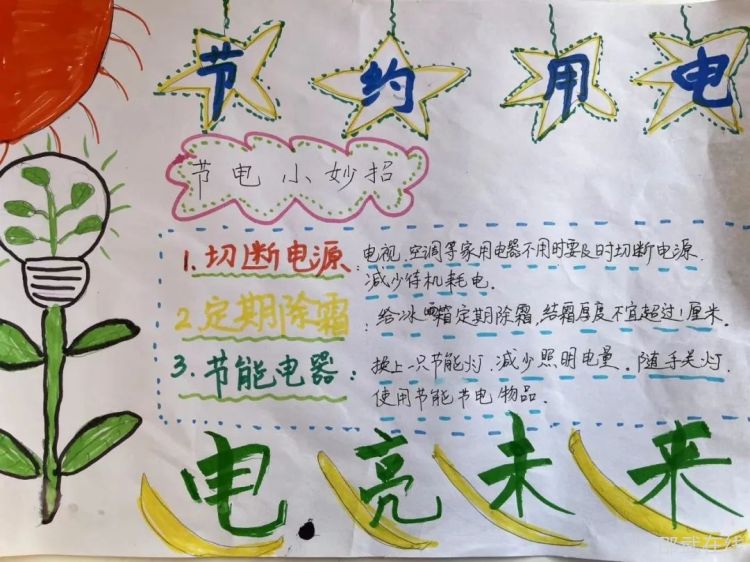 节约用电
节电小妙招
1.切断电源:电视、空调等家用电器不用时要及时切断电源.
减少待机耗电.
2.定期除霜:给冰箱定期除霜,结霜厚度不宜超过1厘米.
3.节能电器:换上一只节能灯.减少照明电量.随手关灯.
使用节能节电物品.
电亮未来
邵武在线